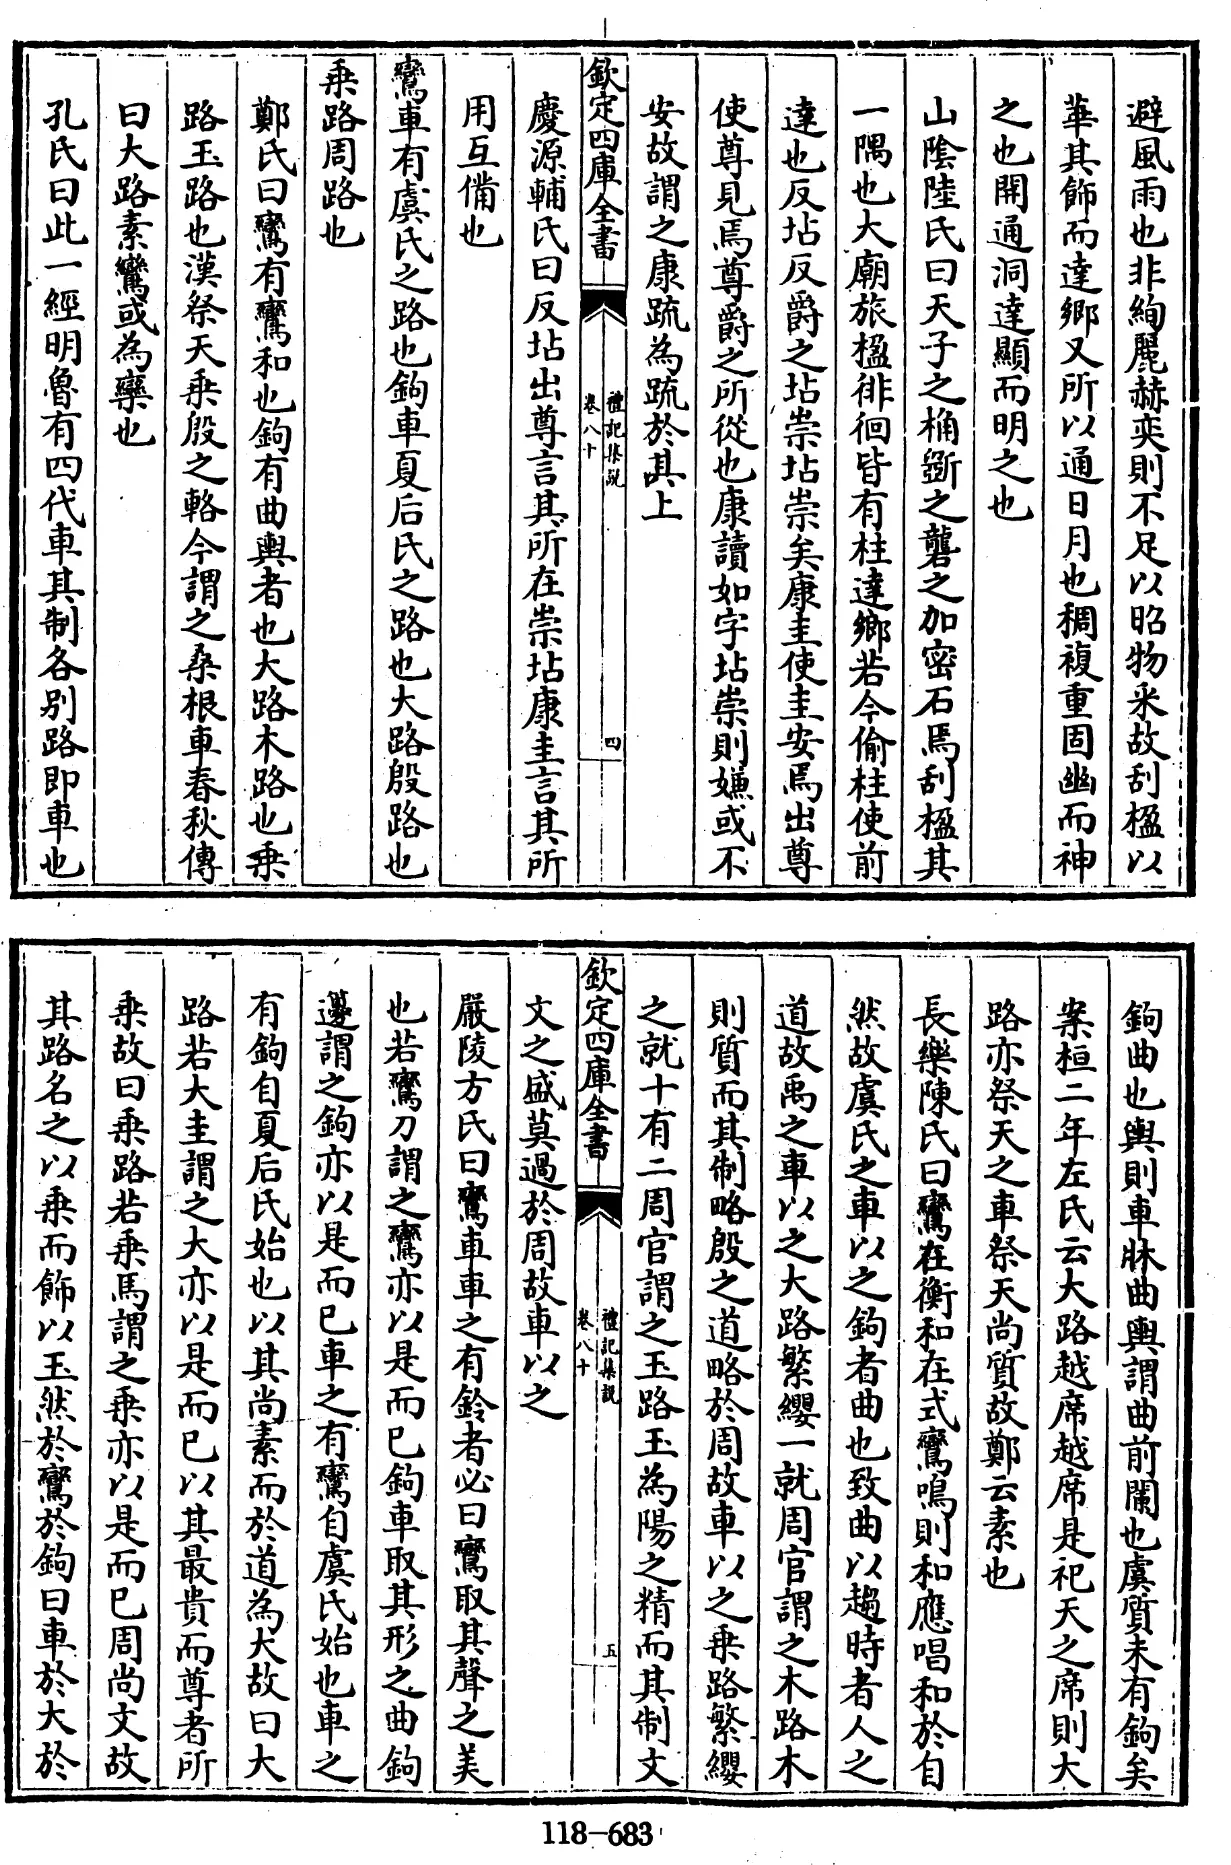 避風雨也非絢麗赫奕則不足以昭物采故刮楹以
華其飾而達鄉又所以通日月也稠複重固幽而神
之也開通洞達顯而明之也
山陰陸氏曰天子之桷斵之礱之加密石焉刮楹其
一隅也大廟旅楹徘徊皆有柱達鄉若今偷柱使前
達也反坫反爵之坫崇坫崇矣康圭使圭安焉出尊
使尊見焉尊爵之所從也康讀如字坫崇則嫌或不
安故謂之康疏為疏於其上
欽定四庫全書
禮記集說
卷八十
四
慶源輔氏曰反坫出尊言其所在崇坫康圭言其所
用互備也
鸞車有虞氏之路也鉤車夏后氏之路也大路殷路也
乘路周路也
鄭氏曰鸞有鸞和也鉤有曲輿者也大路木路也乘
路玉路也漢祭天乘殷之輅今謂之桑根車春秋傳
曰大路素鸞或為欒也
孔氏曰此一經明魯有四代車其制各別路即車也
鉤曲也輿則車牀曲輿謂曲前闌也虞質未有鉤矣
案桓二年左氏云大路越席越席是祀天之席則大
路亦祭天之車祭天尚質故鄭云素也
長樂陳氏曰鸞在衡和在式鸞鳴則和應唱和於自
然故虞氏之車以之鉤者曲也致曲以趨時者人之
道故禹之車以之大路繁纓一就周官謂之木路木
則質而其制略殷之道略於周故車以之乘路繁纓
之就十有二周官謂之玉路玉為陽之精而其制文
欽定四庫全書
禮記集說
卷八十
五
文之盛莫過於周故車以之
嚴陵方氏曰鸞車車之有鈴者必曰鸞取其聲之美
也若鸞刀謂之鸞亦以是而已鉤車取其形之曲鉤
邊謂之鉤亦以是而已車之有鸞自虞氏始也車之
有鉤自夏后氏始也以其尚素而於道為大故曰大
路若大圭謂之大亦以是而已以其最貴而尊者所
乘故曰乘路若乘馬謂之乘亦以是而已周尚文故
其路名之以乘而飾以玉然於鸞於鉤曰車於大於
118-683